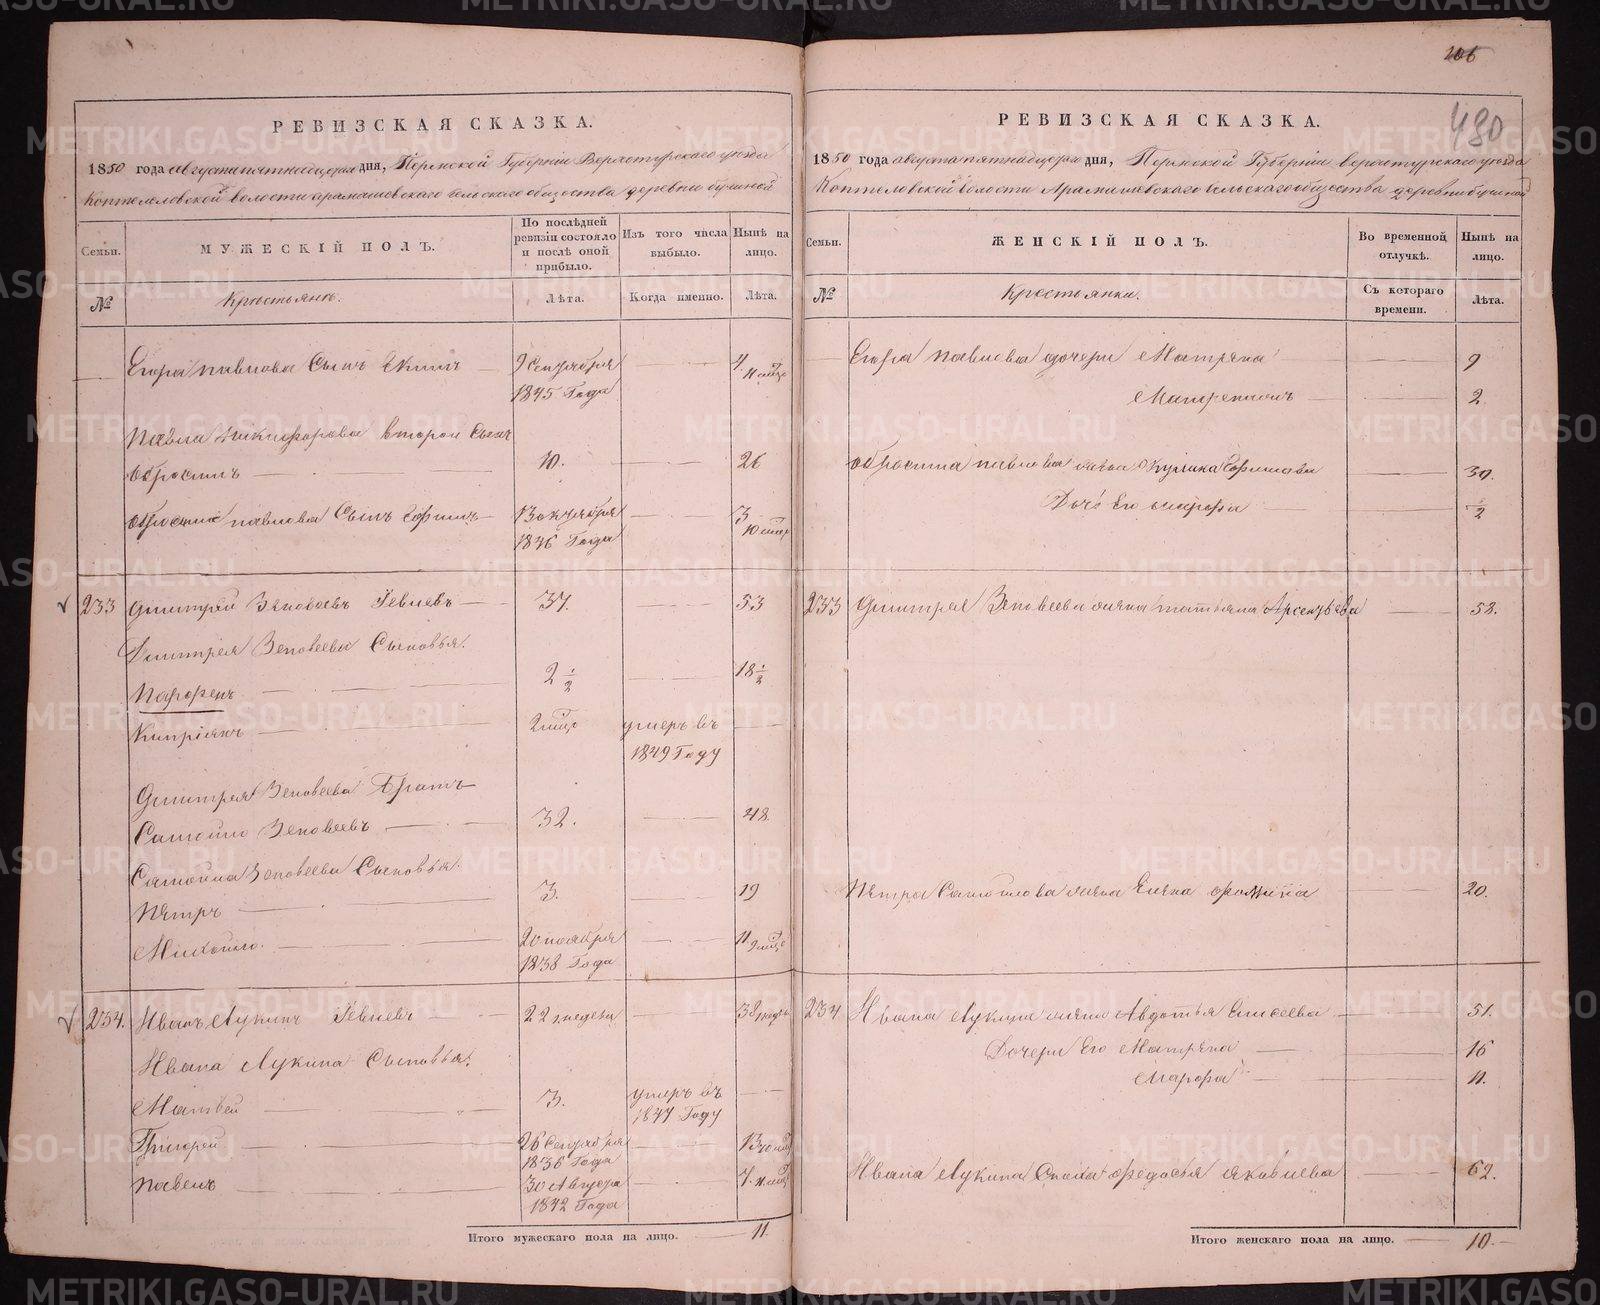 206
480
РЕВИЗСКАЯ СКАЗКА.
1850 года августа пятнадцатого дня, Пермской Губерніи Верхотурскаго уезда
Коптеловской волости Арамашевского сельского общества деревни бучиной
Семьи.
МУЖЕСКІЙ ПОЛЪ.
По послѣдней ревизіи состояло и послѣ оной прибыло.
Изъ того числа выбыло.
Нынѣ на лицо.
№
Крестьянъ.
Лѣта.
Когда именно.
Лѣта.
Егора павлова Сынъ Екимъ 9 Сентября 1845 Года 4 11 мѣц
Павла Никифорова второй Сынъ
Обросимъ 10. 26
Обросима павлова Сынъ Ефимъ 13 октября 1846 Года 3 10 мѣц
233 Дмитрей Зеновеевъ Гевлевъ 37. 53
Дмитрея Зеновеева Сыновья.
Парфенъ 2 1/2 18 1/2
Кипріянъ 2 мѣц умеръ въ 1849 Году
Дмитрея Зеновеева Братъ
Самойло Зеновеевъ 32. 48
Самойла Зеновеева Сыновья.
Пѣтръ 3. 19
Михайло. 20 ноября 1838 Года 11 9 мѣц
234. Иванъ Лукинъ Гевлевъ 22 недели 38
Ивана Лукина Сыновья.
Матвей 3. умеръ въ 1847 Году
Григорей 26 Сентября 1836 Года 13 10 мѣц
павелъ 30 Августа 1842 Года 7. 11 мѣц
Итого мужескаго пола на лицо. 11
РЕВИЗСКАЯ СКАЗКА.
1850 года августа пятнадцатого дня, Пермской Губерніи верхотурскаго уезда
Коптеловской волости Арамашевского сельского общества деревни бучиной
Семьи.
ЖЕНСКІЙ ПОЛЪ.
Во временной отлучкѣ.
Нынѣ на лицо.
№
Крестьянки.
Съ котораго времени.
Лѣта.
Егора павлова дочери Матрена 9
2
Обросима павлова жена Ефимова 30.
Дочь Его 1/2
233 Дмитрея Зеновеева жена татьяна Арсентьева 58.
Пѣтра Самойлова жена Елена фомина 20.
234 Ивана Лукина жена Авдотья Елисеева 51.
Дочери Его Матрена 16
Марфа 11.
Ивана Лукина Сноха федосья яковлева 62.
Итого женскаго пола на лицо. 10.
METRIKI.GASO-URAL.RU